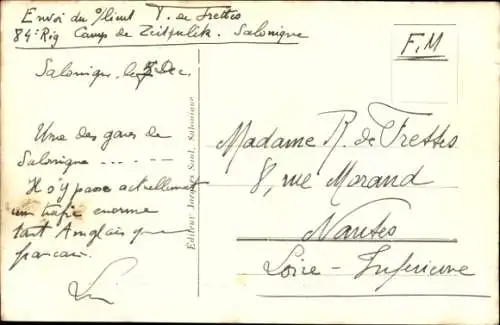 Envoi du s/lieut T. de Frettes
84e Rig Camp de Zeitenlik. Salonique
F.M
Salonique, le 5 Dec.
Une des gares de
Salonique - - - - -
Il s'y passe actuellement
un trafic enorme
tant Anglais que
francais.
Editeur Jacques Saul, Salonique
Madame R. de Frettes
8, rue Morand
Nantes
Loire - Inferieure